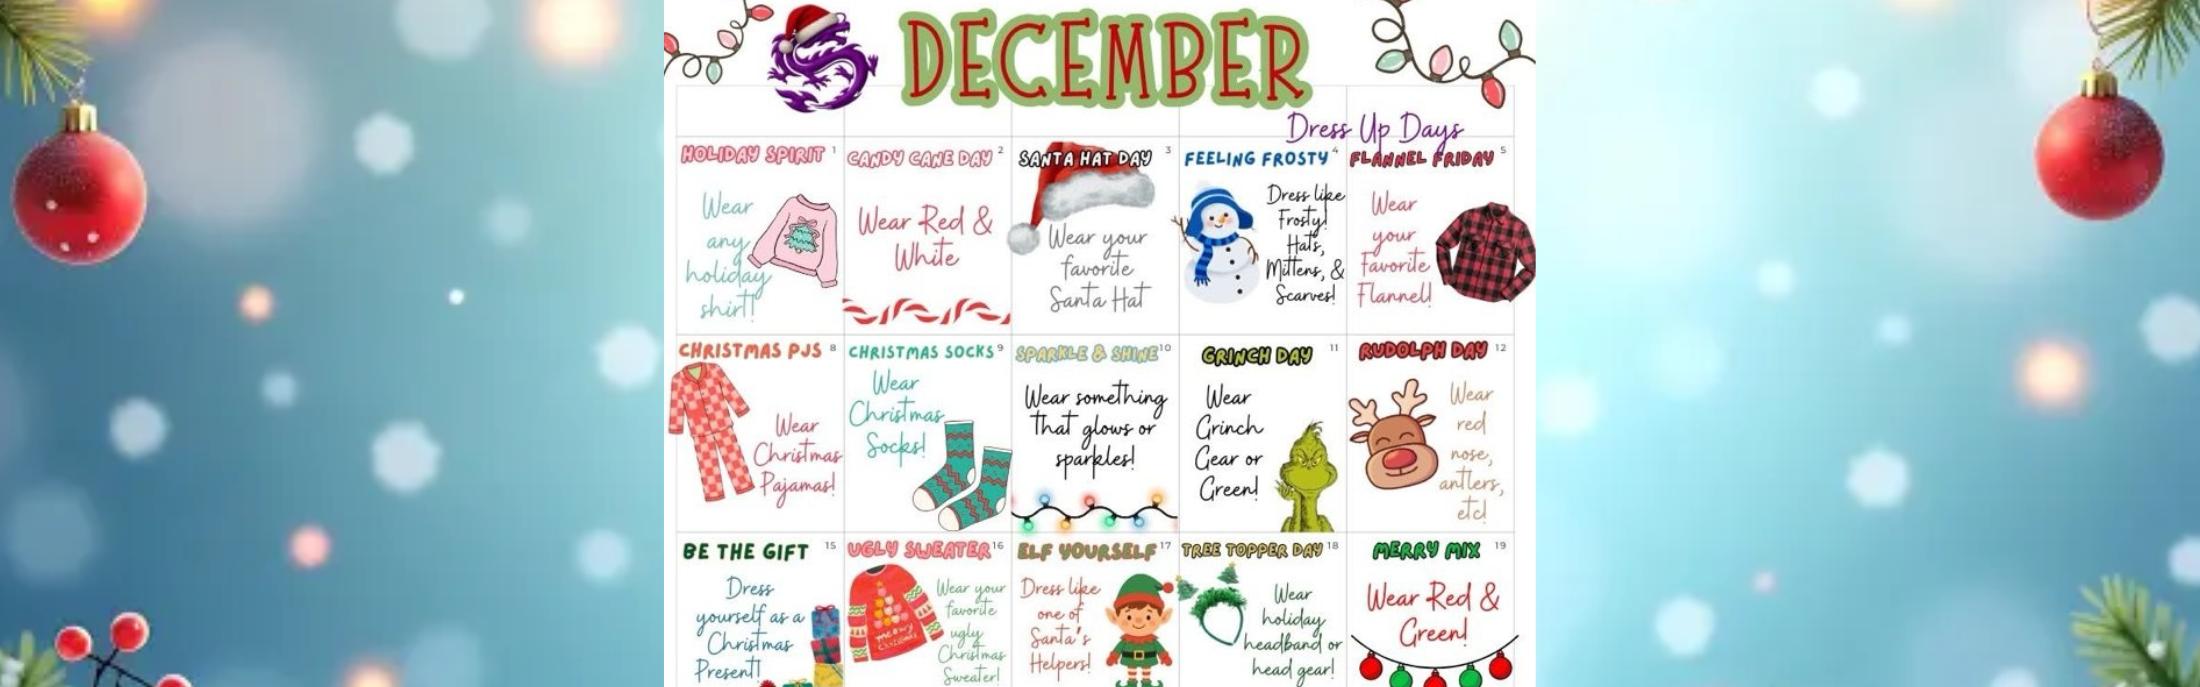 DECEMBER
Dress Up Days
HOLIDAY SPIRIT 1
Wear
any
holiday
shirt!
CANDY CANE DAY 2
Wear Red &
White
SANTA HAT DAY 3
Wear your
favorite
Santa Hat
FEELING FROSTY 4
Dress like
Frosty!
Hats,
Mittens, &
Scarves!
FLANNEL FRIDAY 5
Wear
your
Favorite
Flannel!
CHRISTMAS PJS 8
Wear
Christmas
Pajamas!
CHRISTMAS SOCKS 9
Wear
Christmas
Socks!
SPARKLE & SHINE 10
Wear something
that glows or
sparkles!
GRINCH DAY 11
Wear
Grinch
Gear or
Green!
RUDOLPH DAY 12
Wear
red
nose,
antlers,
etc!
BE THE GIFT 15
Dress
yourself as a
Christmas
Present!
UGLY SWEATER 16
meowy
christmas
Wear your
favorite
ugly
Christmas
Sweater!
ELF YOURSELF 17
Dress like
one of
Santa's
Helpers!
TREE TOPPER DAY 18
Wear
holiday
headband or
head gear!
MERRY MIX 19
Wear Red &
Green!